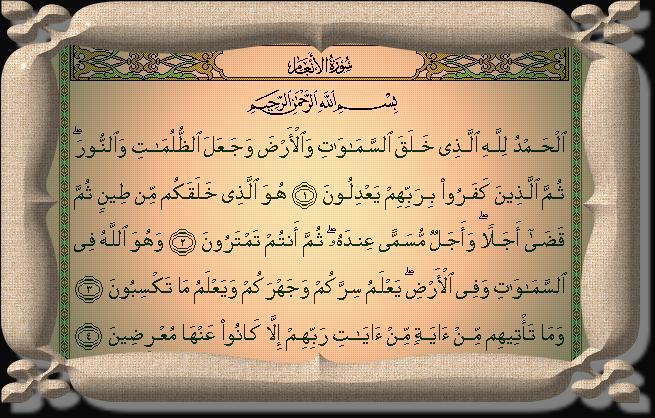 سُورَةُ الأَنْعَام
بِسْمِ ٱللَّهِ ٱلرَّحْمَٰنِ ٱلرَّحِيمِ
ٱلْحَمْدُ لِلَّهِ ٱلَّذِى خَلَقَ ٱلسَّمَٰوَٰتِ وَٱلْأَرْضَ وَجَعَلَ ٱلظُّلُمَٰتِ وَٱلنُّورَ ۖ
ثُمَّ ٱلَّذِينَ كَفَرُوا۟ بِرَبِّهِمْ يَعْدِلُونَ ١ هُوَ ٱلَّذِى خَلَقَكُم مِّن طِينٍ ثُمَّ
قَضَىٰٓ أَجَلًا ۖ وَأَجَلٌ مُّسَمًّى عِندَهُۥ ۖ ثُمَّ أَنتُمْ تَمْتَرُونَ ٢ وَهُوَ ٱللَّهُ فِى
ٱلسَّمَٰوَٰتِ وَفِى ٱلْأَرْضِ ۖ يَعْلَمُ سِرَّكُمْ وَجَهْرَكُمْ وَيَعْلَمُ مَا تَكْسِبُونَ ٣
وَمَا تَأْتِيهِم مِّنْ ءَايَةٍ مِّنْ ءَايَٰتِ رَبِّهِمْ إِلَّا كَانُوا۟ عَنْهَا مُعْرِضِينَ ٤